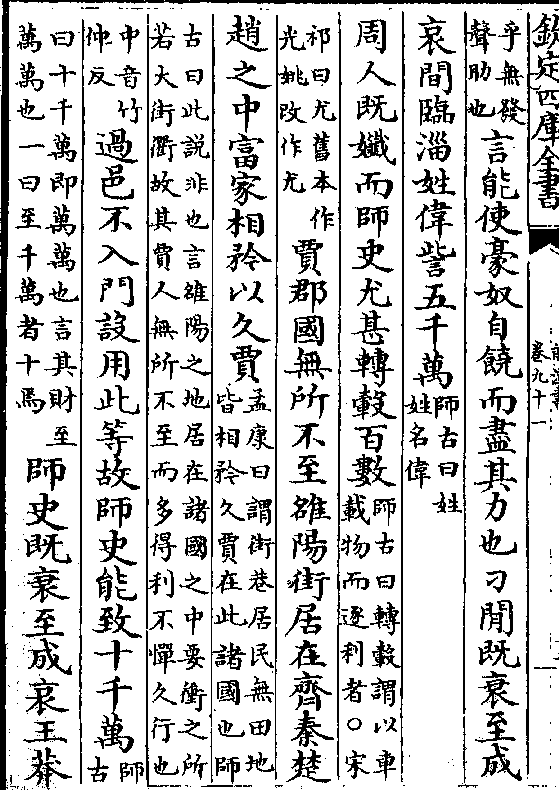 欽定四庫全書
前漢書
卷九十一
乎無發
聲助也
言能使豪奴自饒而盡其力也刁閒既衰至成
哀間臨淄姓偉訾五千萬
師古曰姓
姓名偉
周人既孅而師史尤甚轉轂百數
師古曰轉轂謂以車
載物而逐利者○宋
祁曰尤舊本作
光姚改作尤
賈郡國無所不至雒陽街居在齊秦楚
趙之中富家相矜以久賈
孟康曰謂街巷居民無田地
皆相矜久賈在此諸國也師
古曰此説非也言雒陽之地居在諸國之中要衝之所
若大街衢故其賈人無所不至而多得利不憚久行也
中音竹
仲反
過邑不入門設用此等故師史能致十千萬
師古
曰十千萬即萬萬也言其財至
萬萬也一曰至千萬者十焉
師史既衰至成哀王莽